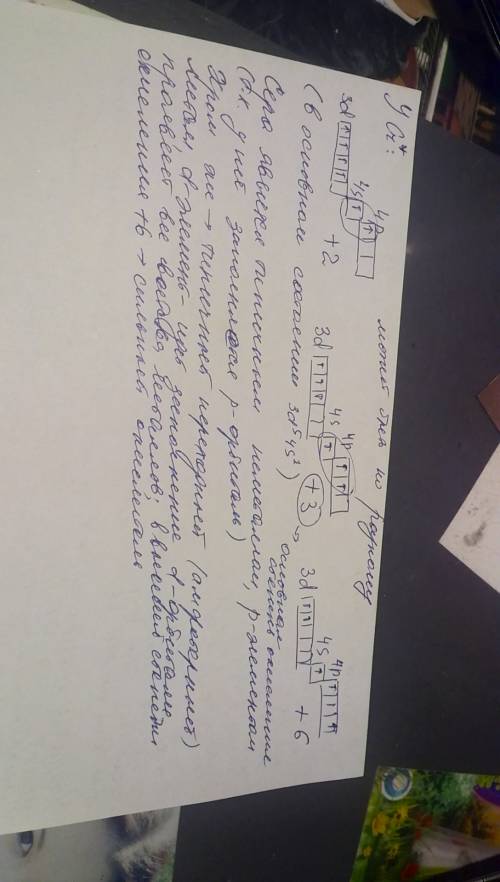 У Cr*: может быть по разному
3d ↑ ↑ ↑ ↑ 4s ↑ 4p ↑ +2
3d ↑ ↑ ↑ 4s ↑ 4p ↑ ↑ +3 → основная степень окисления
3d 4s ↑ 4p ↑ ↑ ↑ +6
(в основном состоянии 3d⁵4s¹)
Сера является типичным неметаллом, p-элементом
(т.к. у неё заполняется p-орбиталь)
Хром же → типичный переходный (амфотерный)
металл d-элемент- идёт заполнение d-орбитали
проявляет все свойства металлов; в высшей степени
окисления +6 → сильный окислитель